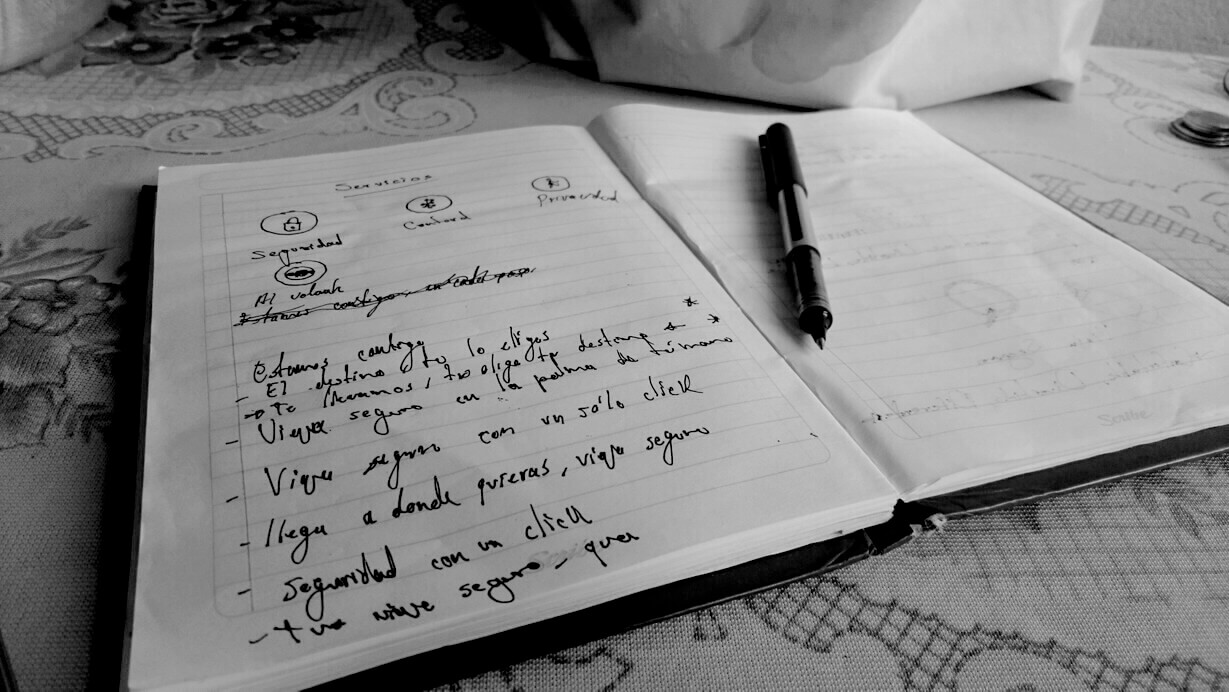 Servicios
Seguridad
Confort
Privacidad
Al volante
Estamos contigo, en cada paso
Estamos contigo
- El destino tu lo eliges
→ Te llevamos, tu elige tu destino
- Viaja seguro en la palma de tú mano
- Viaja seguro con un sólo click
- llega a donde quieras, viaja seguro
- seguridad con un click
- seguro, que
Scribe